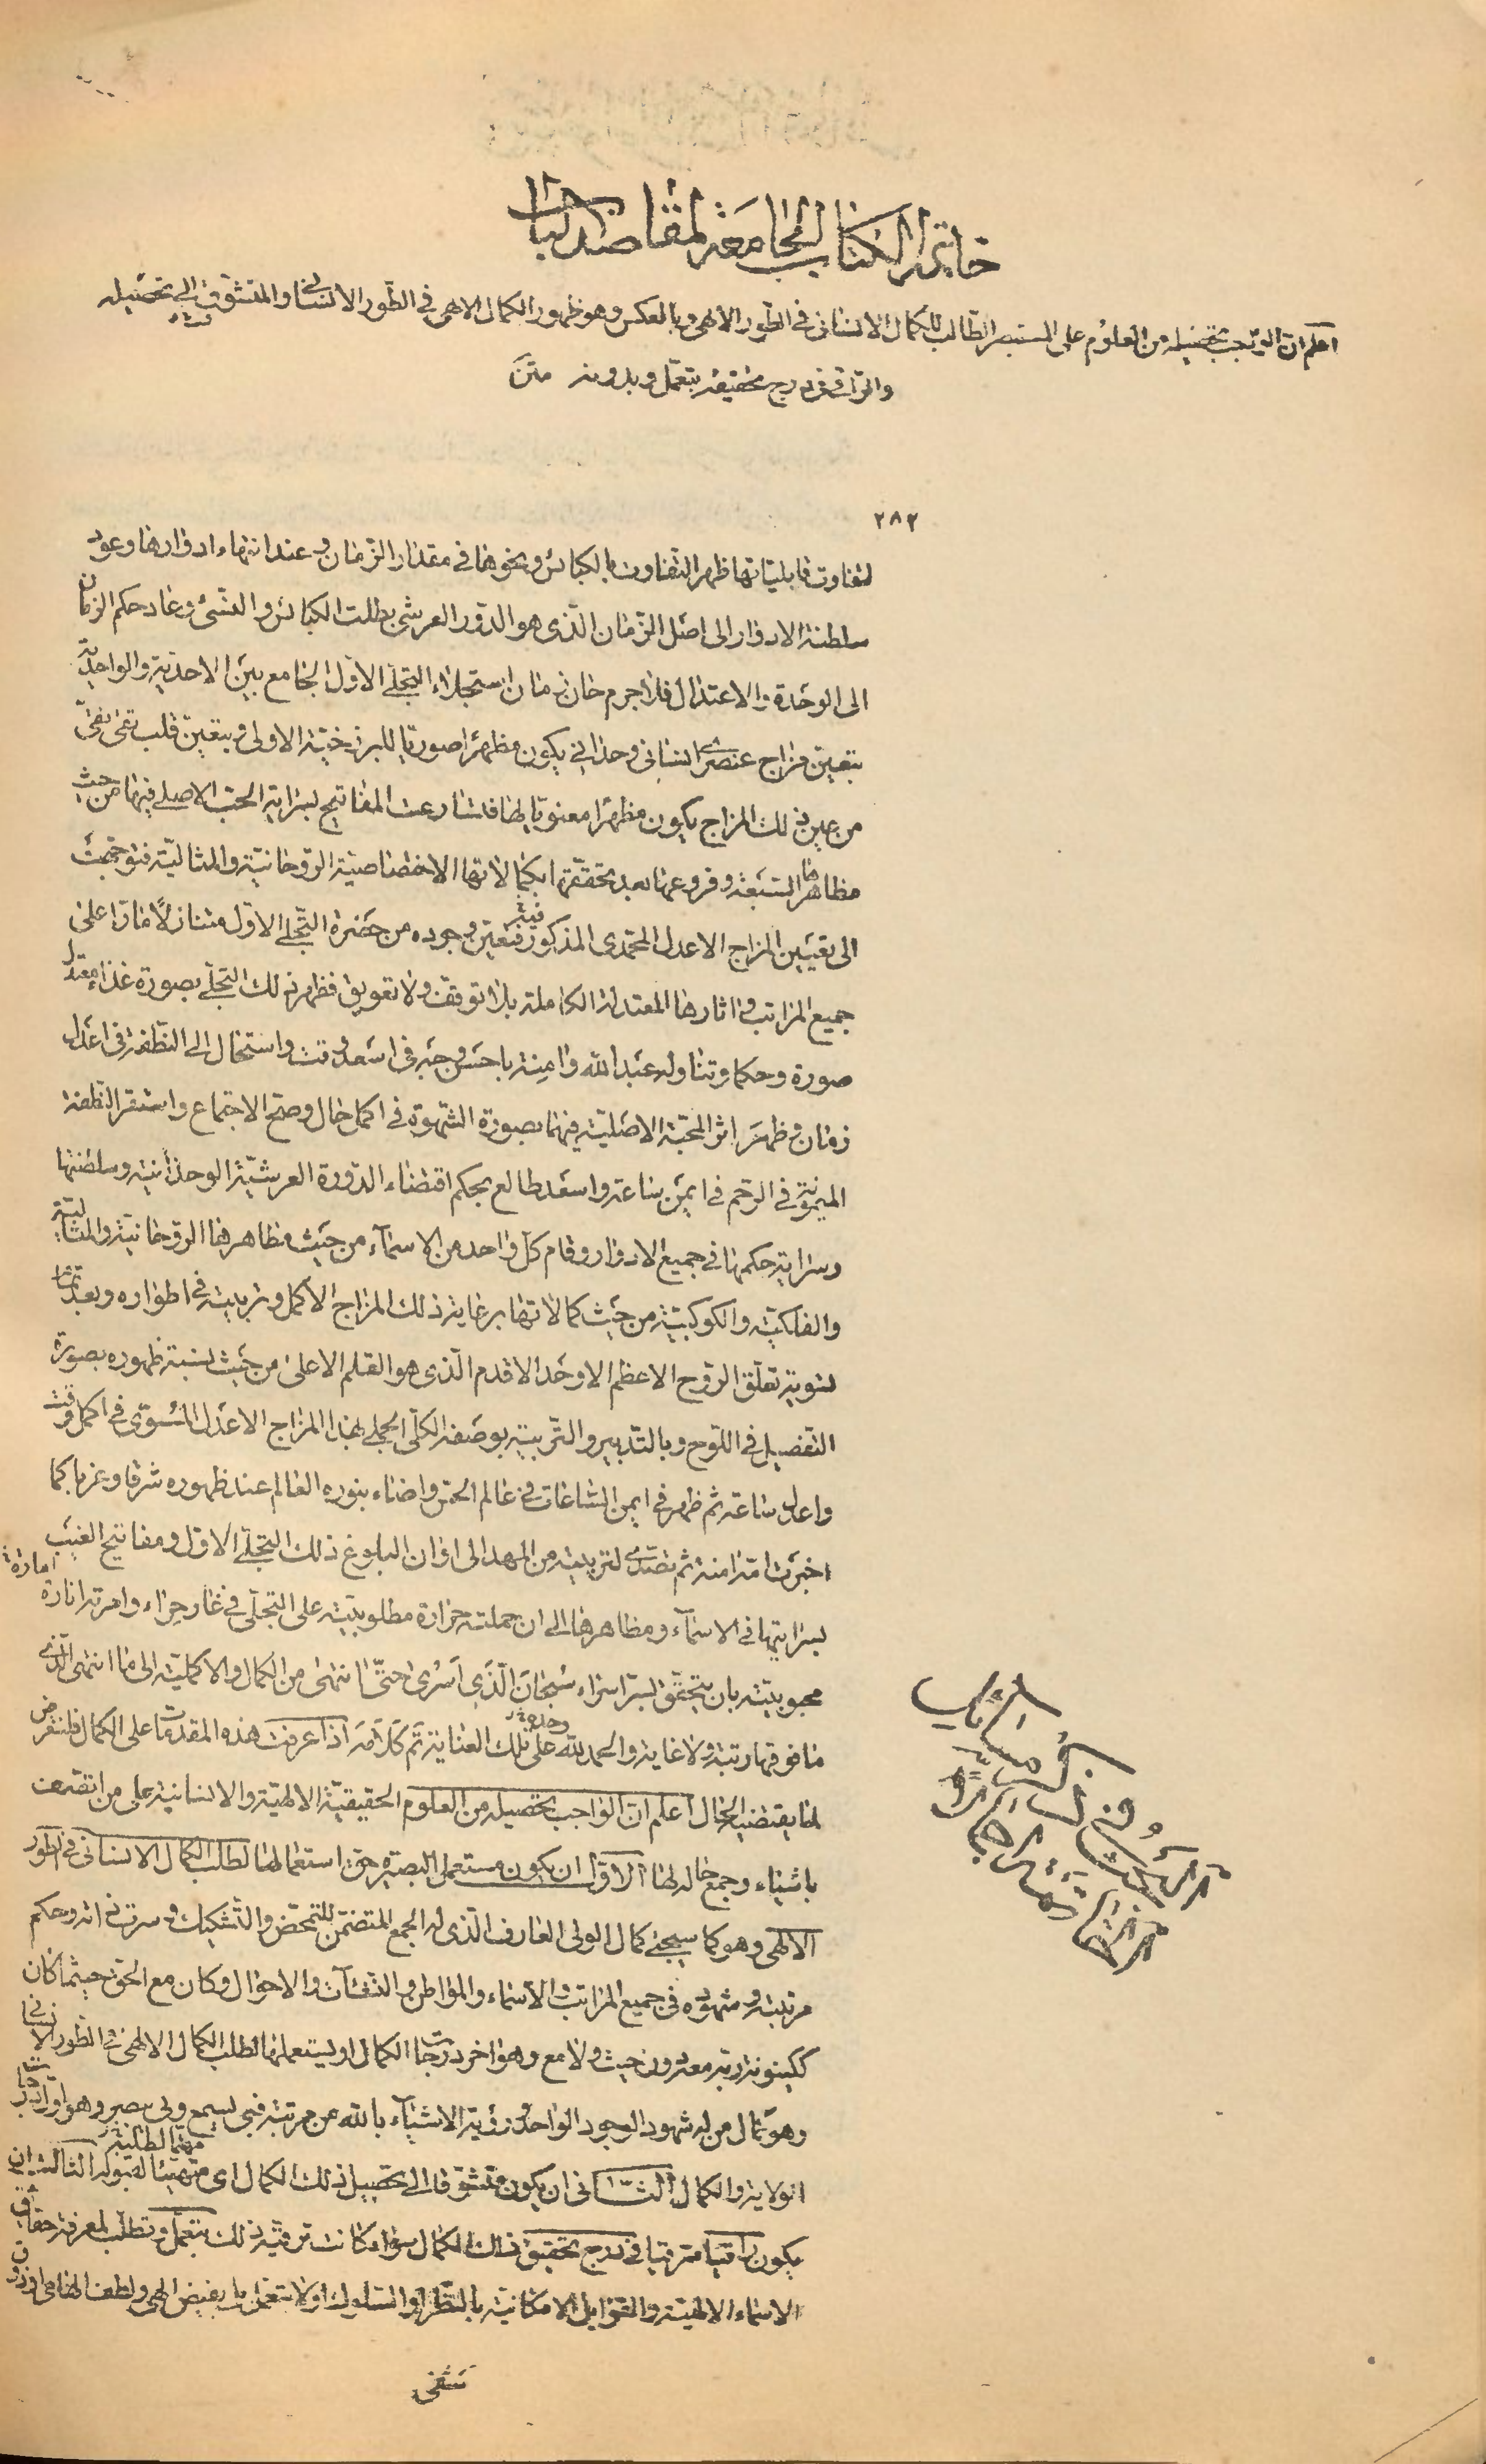 خاتمة الكتاب الجامعة لمقاصد الباب
اعلم ان الذى يجب تحصيله من العلوم على المستبصر الطالب للكمال الانسانى فى الطور الالهى وبالعكس وهو ظهور الكمال الالهى فى الطور الانسانى والمتشوق الى تحصيله
والراقى فى درج تحقيقه بتعمل وبدونه متن
٢٨٢
لتفاوت قابلياتها ظهر التفاوت بالكبائس ونحوها فى مقدار الزمان وعند انتهاء ادوارها وعود
سلطنة الادوار الى اصل الزمان الذى هو الدور العرشى بطلت الكبائس والنسئ وعاد حكم الزمان
الى الوحدة والاعتدال فلا جرم حان زمان استجلاء التجلى الاول الجامع بين الاحدية والواحدية
بتعين مزاج عنصرى انسانى وحدانى يكون مظهرا صوريا للبرزخية الاولى وبتعين قلب تقى نقى
من عين ذلك المزاج يكون مظهرا معنويا لها فتسارعت المفاتيح بسراية الحب الاصلى فيها من حيث
مظاهرها السبعة وفروعها بعد تحققها بكمالاتها الاختصاصية الروحانية والمثالية فتوجهت
الى تعيين المزاج الاعدل المحمدى المذكور فتعين فيه وجوده من حضرة التجلى الاول متنازلا مارا على
جميع المراتب واثارها المعتدلة الكاملة بلا توقف ولا تعويق فظهر ذلك التجلى بصورة غذاء معتدل
صورة وحكما وتناوله عبد الله وامنة باحسن وجه فى اسعد وقت واستحال الى النطفة فى اعدل
زمان وظهر اثر المحبة الاصلية فيهما بصورة الشهوة فى اكمل حال وصح الاجتماع واستقر النطفة
الميمونة فى الرحم فى ايمن ساعة واسعد طالع بحكم اقتضاء الدورة العرشية الوحدانية وسلطنتها
وسراية حكمها فى جميع الادوار وقام كل واحد من الاسماء من حيث مظاهرها الروحانية والمثالية
والفلكية والكوكبية من حيث كمالاتها برعاية ذلك المزاج الاكمل وتربيته فى اطواره وبعد تمام
تسويته تعلق الروح الاعظم الاوحد الاقدم الذى هو القلم الاعلى من حيث نسبة ظهوره بصورة
التفصيل فى اللوح وبالتدبير والتربية بوصفه الكلى الجملى بهذا المزاج الاعدل المسوى فى اكمل وقت
واعدل ساعة ثم ظهر فى ايمن الساعات فى عالم الحس واضاء بنوره العالم عند ظهوره شرقا وغربا كما
اخبرت امه امنة ثم تصدى لتربيته من المهد الى اوان البلوغ ذلك التجلى الاول ومفاتيح الغيب
بسرايتها فى الاسماء ومظاهرها الى ان حملته حرارة مطلوبيته على التجلى فى غار حراء وامرته انارة امارة
محبوبيته بان يتحقق بسر اسراء سبحان الذى اسرى حتى انتهى من الكمال والاكملية الى ما انتهى الذى
ما فوقها رتبة ولا غاية والحمد لله وحده على تلك العناية تم كلامه اذا عرفت هذه المقدمات على الكمال فلنفرض
لما يقتضيه الحال اعلم ان الواجب تحصيله من العلوم الحقيقية الالهية والانسانية على من اتصف
باشياء وجمع حاله لها الاول ان يكون مستعملا لبصيرة حق استعمالها لطلب الكمال الانسانى فى الطور
الالهى وهو كما سيجئ كمال الولى العارف الذى له الجمع المتضمن للتمحض والتشكيك وسرت ذاته وحكم
مرتبته وشهوده فى جميع المراتب والاسماء والمواطن والنشآت والاحوال وكان مع الحق حيثما كان
ككينونة ربه معه دون حيث ولا مع وهو اخر درجات الكمال او ليستعملها لطلب الكمال الالهى فى الطور الانسانى
وهو كمال من له شهود الوجود الواحد ورؤية الاشياء بالله عن مرتبة فبى يسمع وبى يبصر وهو اول درجات
الولاية والكمال الثانى ان يكون متشوقا الى تحصيل ذلك الكمال اى متهيئا لقبوله مهتما لطلبه الثالث ان
يكون راقيا مترقيا فى درج تحقيق ذلك الكمال سواء كانت ترقيه ذلك بتعمل وتطلب لمعرفة حقايق
الاسماء الالهية والقوابل الامكانية بالنظر او السلوك او لا بتعمل بل بفيض الهى ولطف الهامى او ذوق
شفى
الكشف فى ذكر مسائل
الخاتمة اجمالا